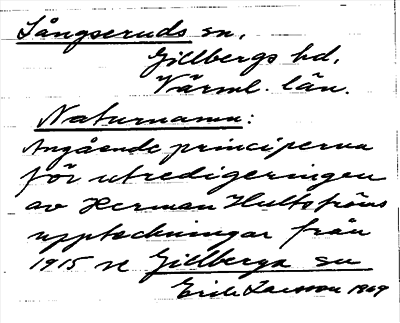 Långseruds sn,
Gillbergs hd,
Värml. län.
Naturnamn:
Angående principerna
för utredigeringen
av Herman Hultströms
uppteckningar från
1915 se Gillberga sn
Erik Larsson 1969